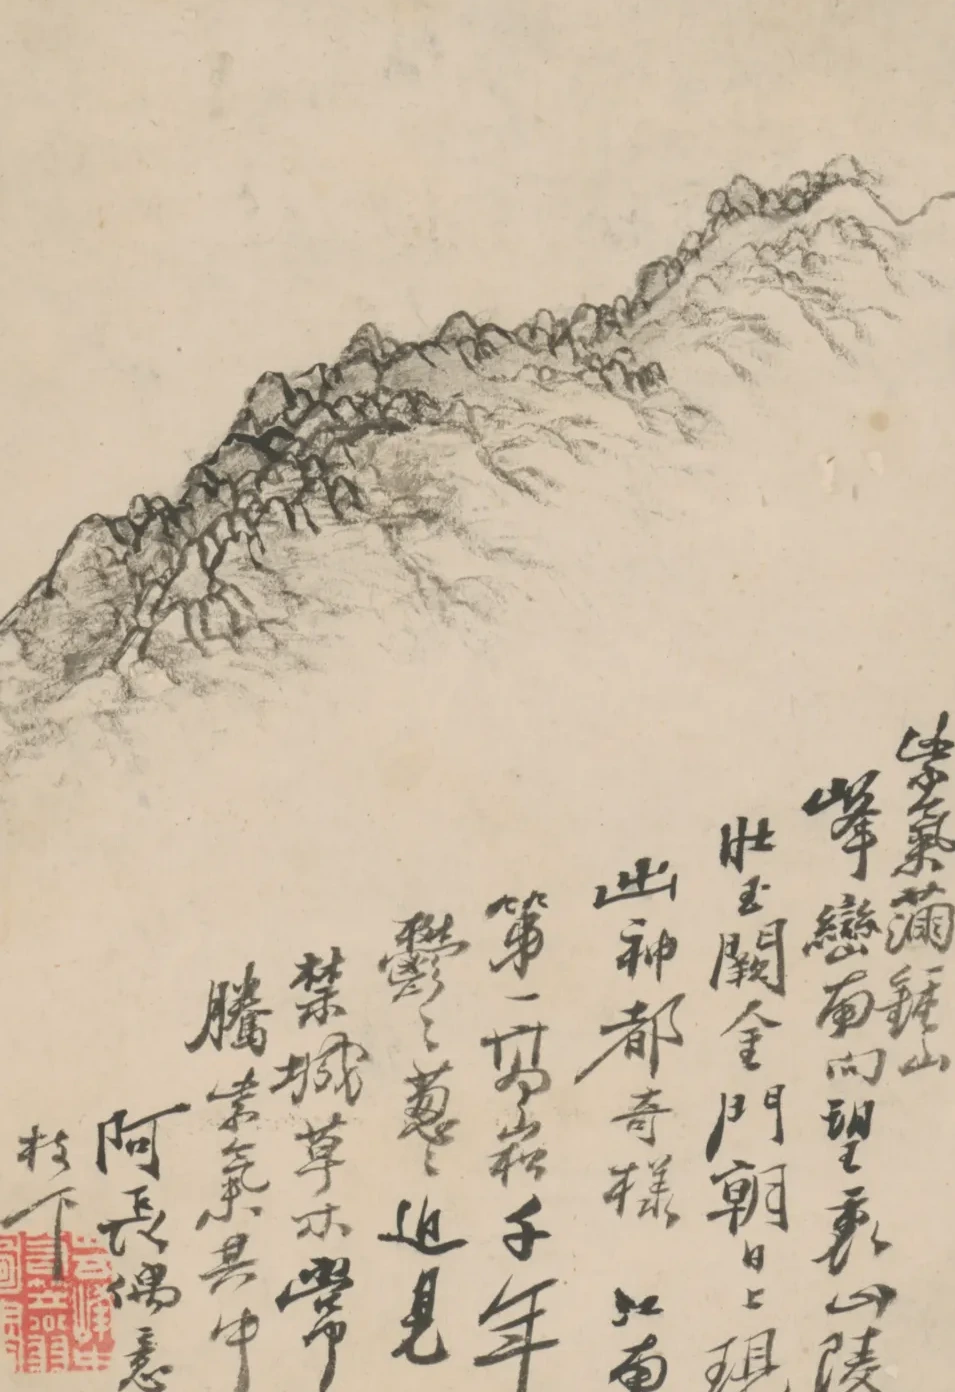 紫氣滿鍾山
峰巒南向望裏山陵
壯玉闕金門朝日上現
出神都奇樣江南
第一高崧千年
鬱〻葱〻迫見
禁城草木常
騰紫氣其中
阿長偶意
枝下